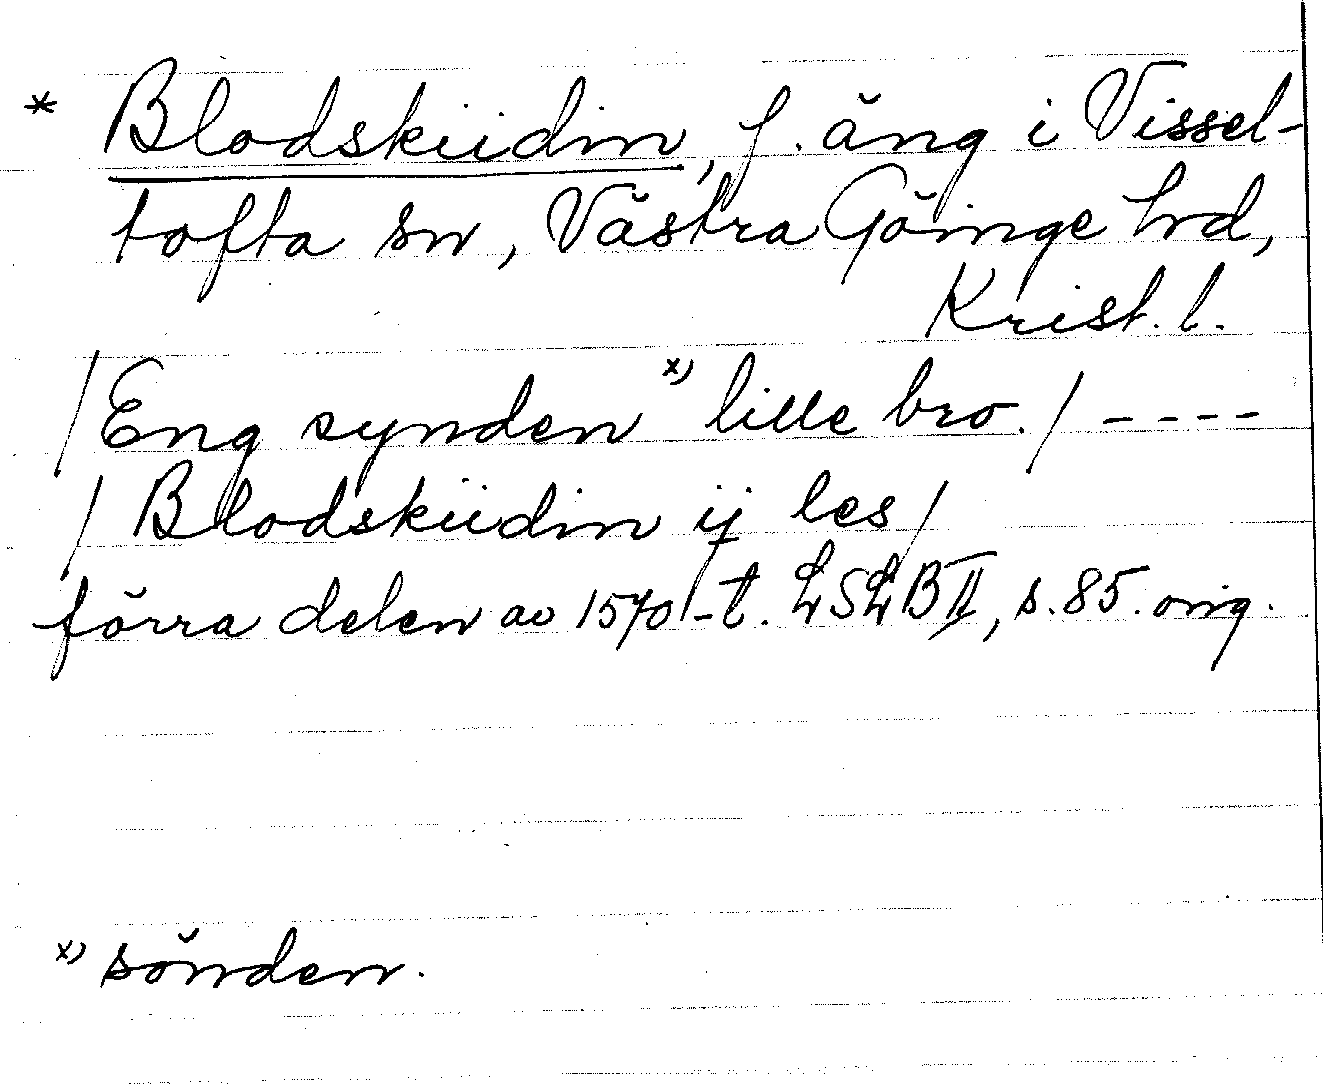 * Blodskiidin, f. äng i Vissel-
tofta sn, Västra Göinge hrd,
Krist. l.
/Eng synden x) lille bro./ ----
/Blodskiidin ij les/
förra delen av 1570-t. LSLB II, s. 85. orig.
x) sönden.